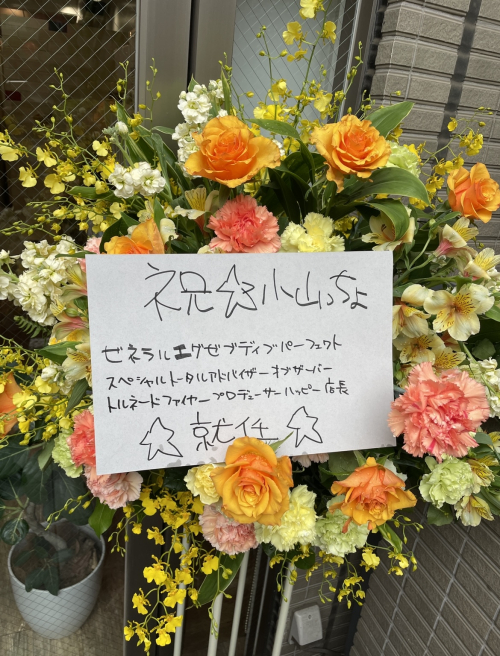 祝☆小山っちょ
ゼネラルエグゼブティブパーフェクト
スペシャルトータルアドバイザーオブザーバー
トルネードファイヤープロデューサーハッピー店長
☆就任☆